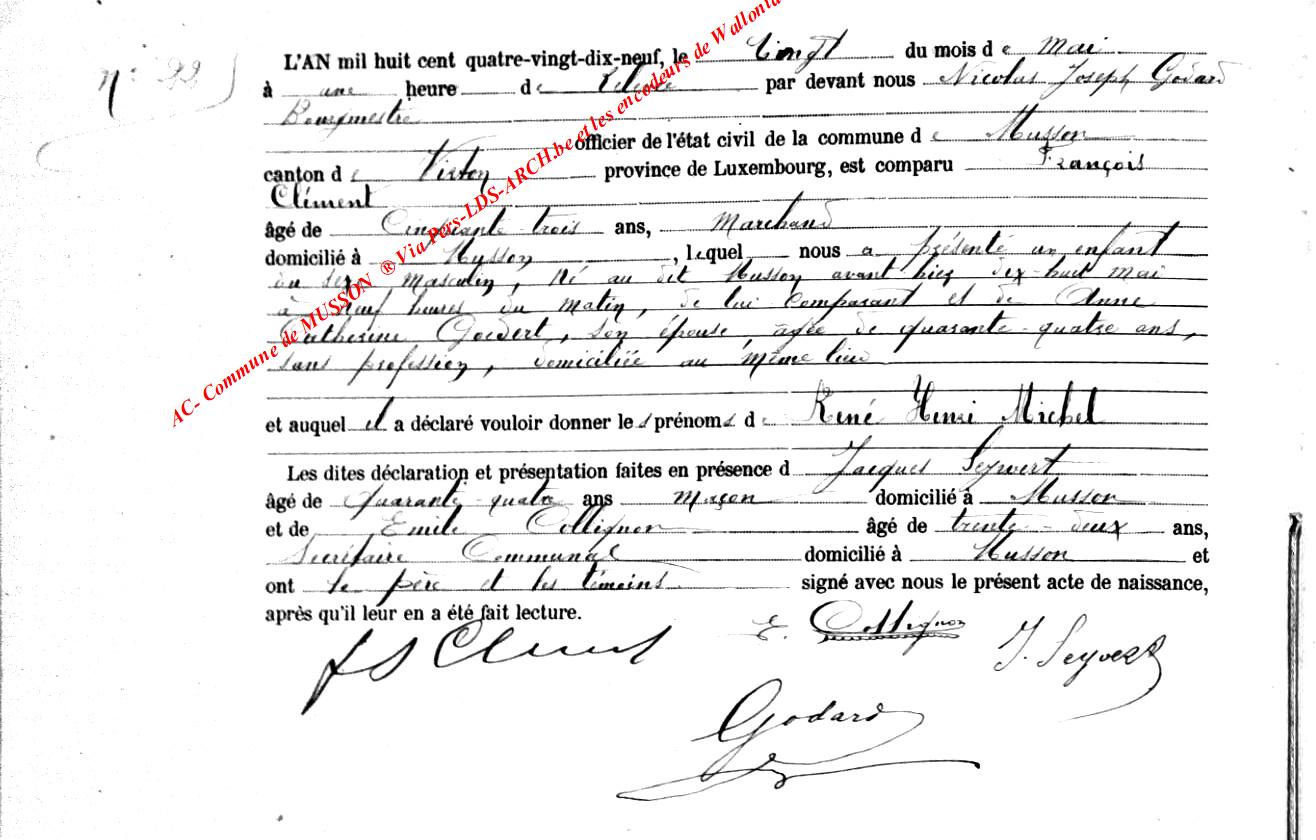 n° 22
L'AN mil huit cent quatre-vingt-dix-neuf, le vingt du mois de Mai
à une heure de relevée par devant nous Nicolas Joseph Godard
Bourgmestre
officier de l'état civil de la commune de Musson
canton de Virton province de Luxembourg, est comparu François
Clément
âgé de Cinquante trois ans, Marchand
domicilié à Musson, lequel nous a présenté un enfant
du sexe Masculin, Né au dit Musson avant hier dix-huit mai
à neuf heures du Matin, de lui Comparant et de Anne
Catherine Goedert, son épouse, agée de quarante-quatre ans,
sans profession, domiciliée au même lieu
et auquel il a déclaré vouloir donner les prénoms de René Henri Michel
Les dites déclaration et présentation faites en présence d Jacques Seyvert
âgé de Quarante-quatre ans maçon domicilié à Musson
et de Emile Collignon âgé de trente-deux ans,
Secrétaire Communal domicilié à Musson et
ont le père et les témoins signé avec nous le présent acte de naissance,
après qu'il leur en a été fait lecture.
E. Collignon
J. Seyvert
Godard
AC- Commune de MUSSON ® Via Pers-LDS-ARCH.be et les encodeurs de Wallonia